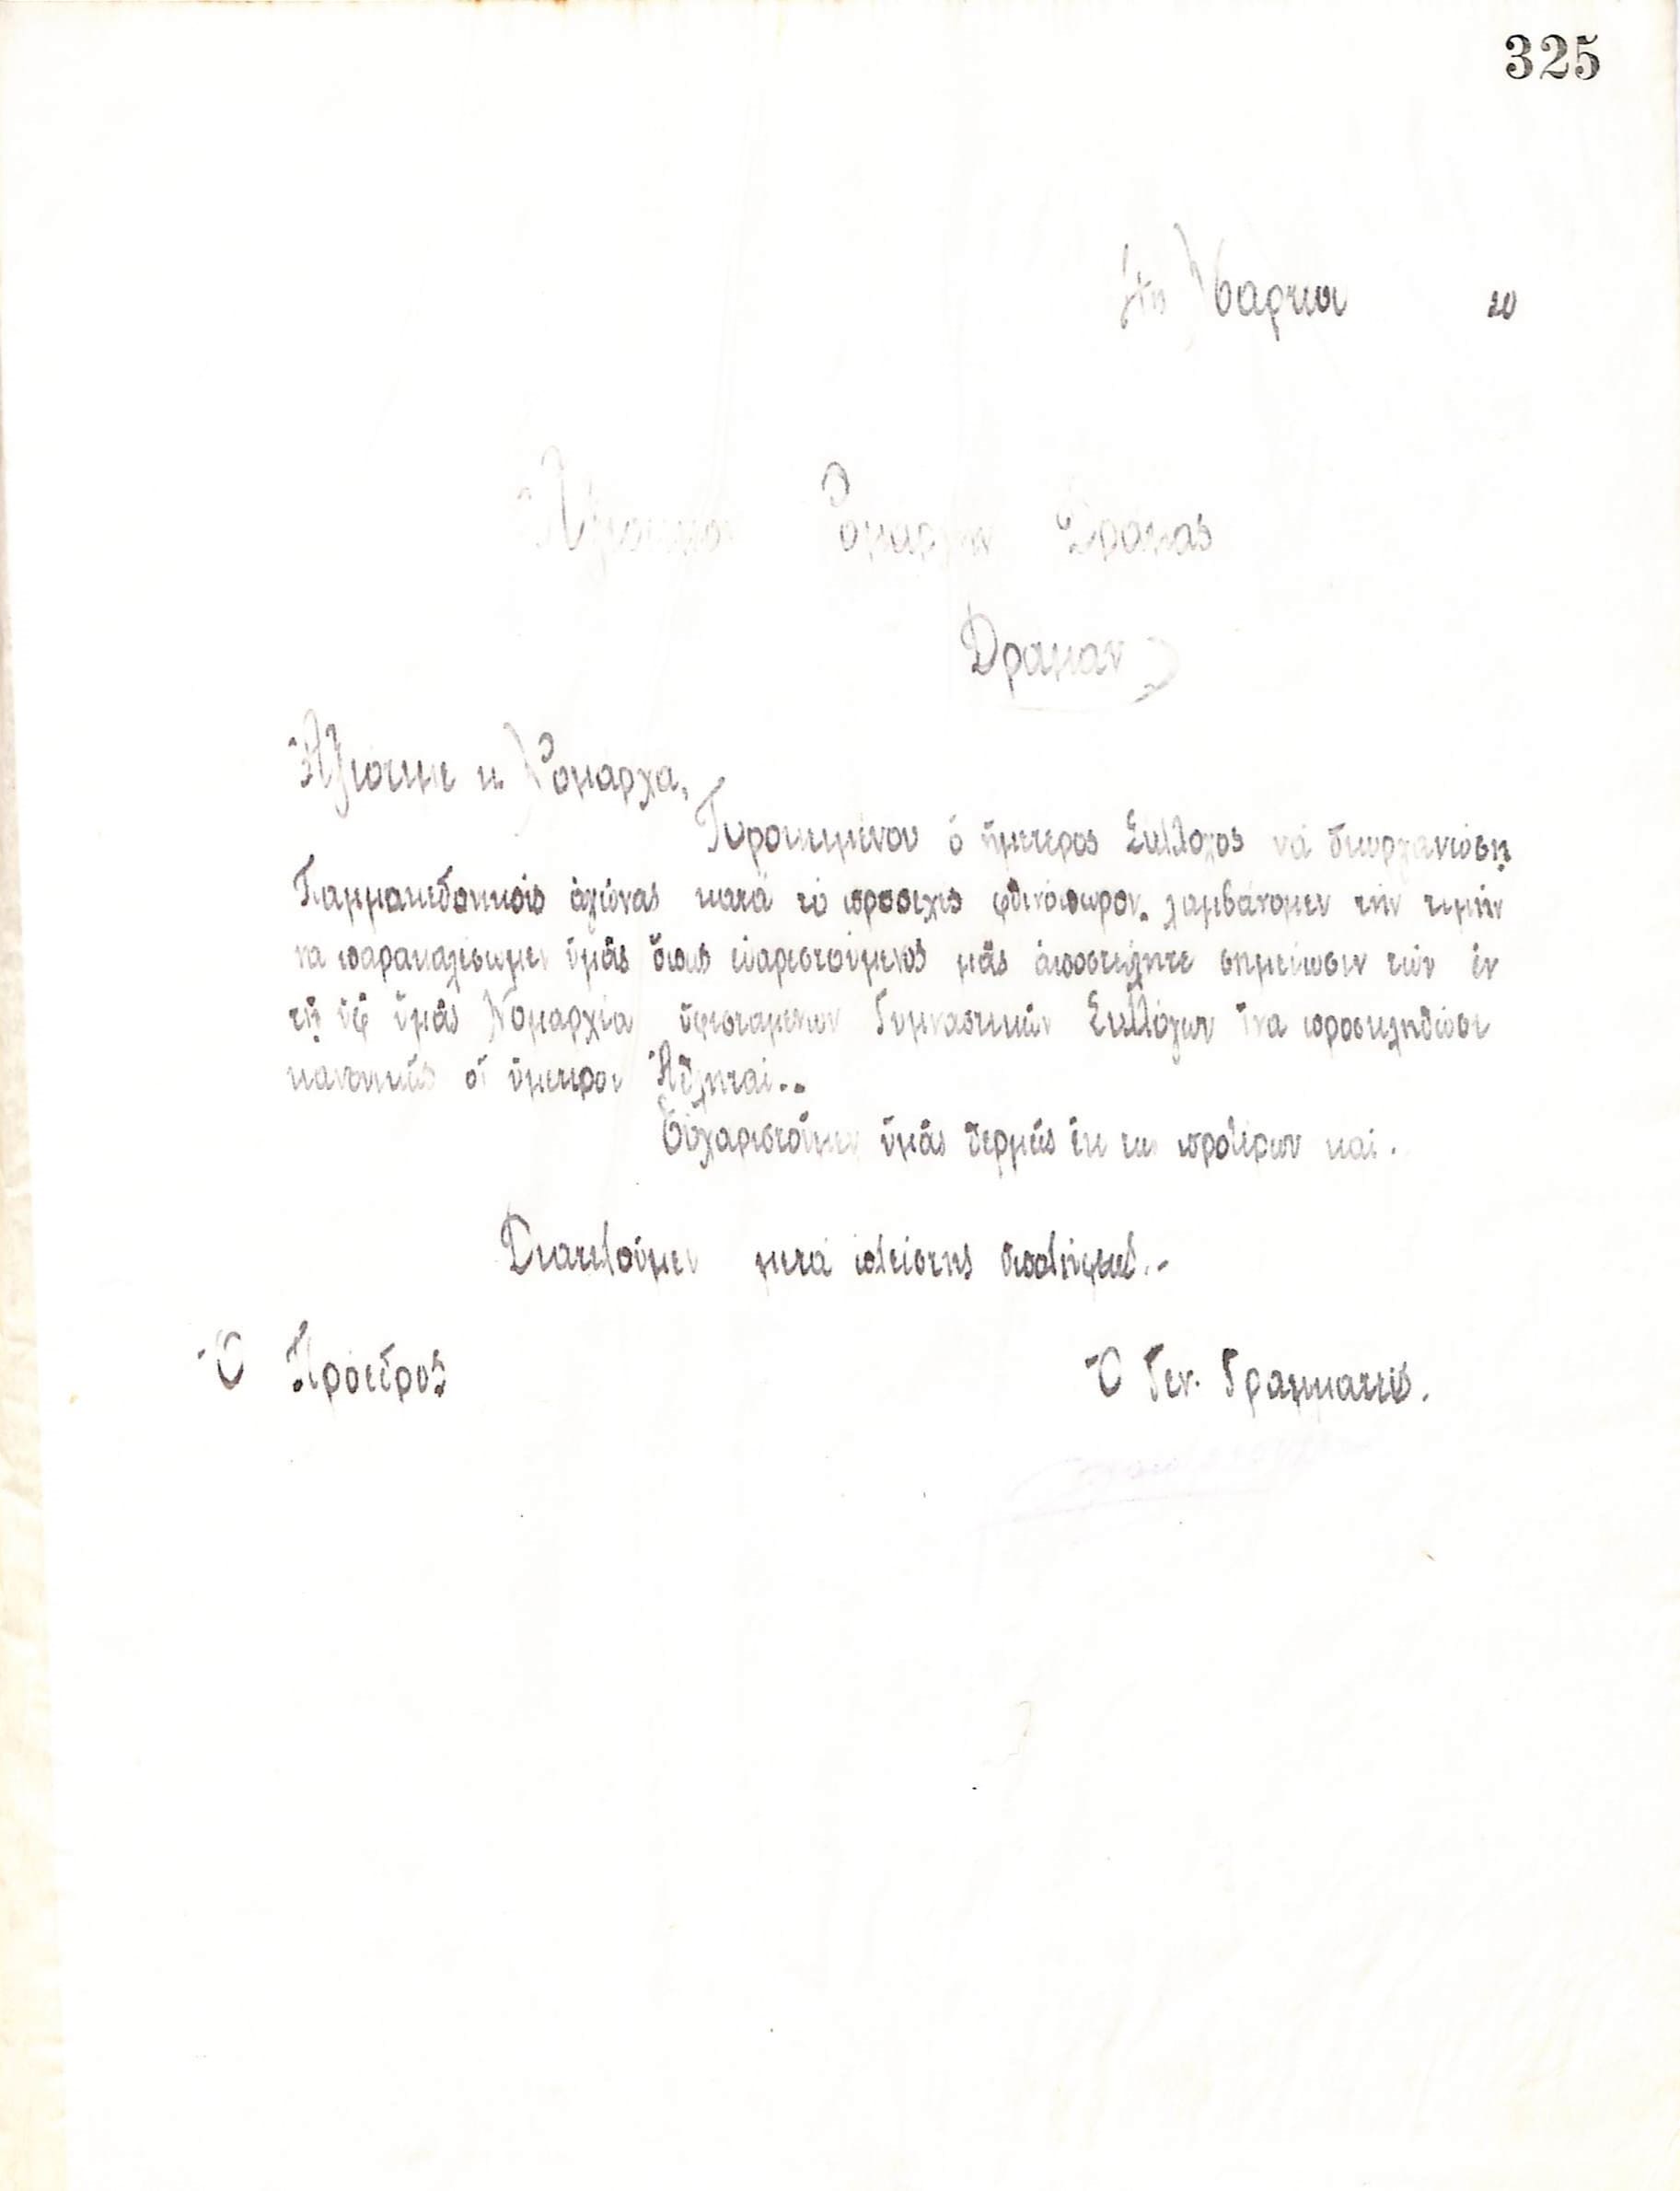 325
20
Ἀξιότιμον Νομάρχην Δράμας
Δράμαν
Ἀξιότιμε κ. Νομάρχα,
Προκειμένου ὁ ἡμέτερος Σύλλογος νά διοργανώσῃ
Παμμακεδονικούς ἀγώνας κατά τό προσεχές φθινόπωρον, λαμβάνομεν τήν τιμήν
να παρακαλέσωμεν ὑμᾶς ὅπως εὐαρεστούμενος μᾶς ἀποστείλητε σημείωσιν τῶν ἐν
τῇ ὑφ' ὑμᾶς Νομαρχία ὑφισταμένων Γυμναστικῶν Συλλόγων ἵνα προσκληθῶσι
κανονικῶς οἱ ὑμέτεροι Ἀθληταί..
Εὐχαριστοῦμεν ὑμᾶς θερμῶς ἐκ των προτέρων καί.
Διατελοῦμεν μετά πλείστης ὑπολήψεως.-
Ὁ Πρόεδρος
Ὁ Γεν. Γραμματεύς.